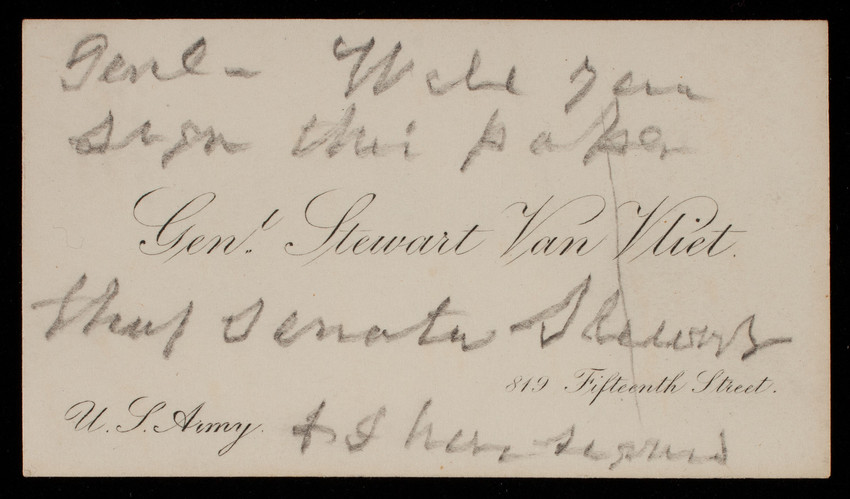 Genl - Will you
sign this paper
Genl. Stewart Van Vliet.
that Senator Stewart
819 Fifteenth Street.
U. S. Army.
& I have signed